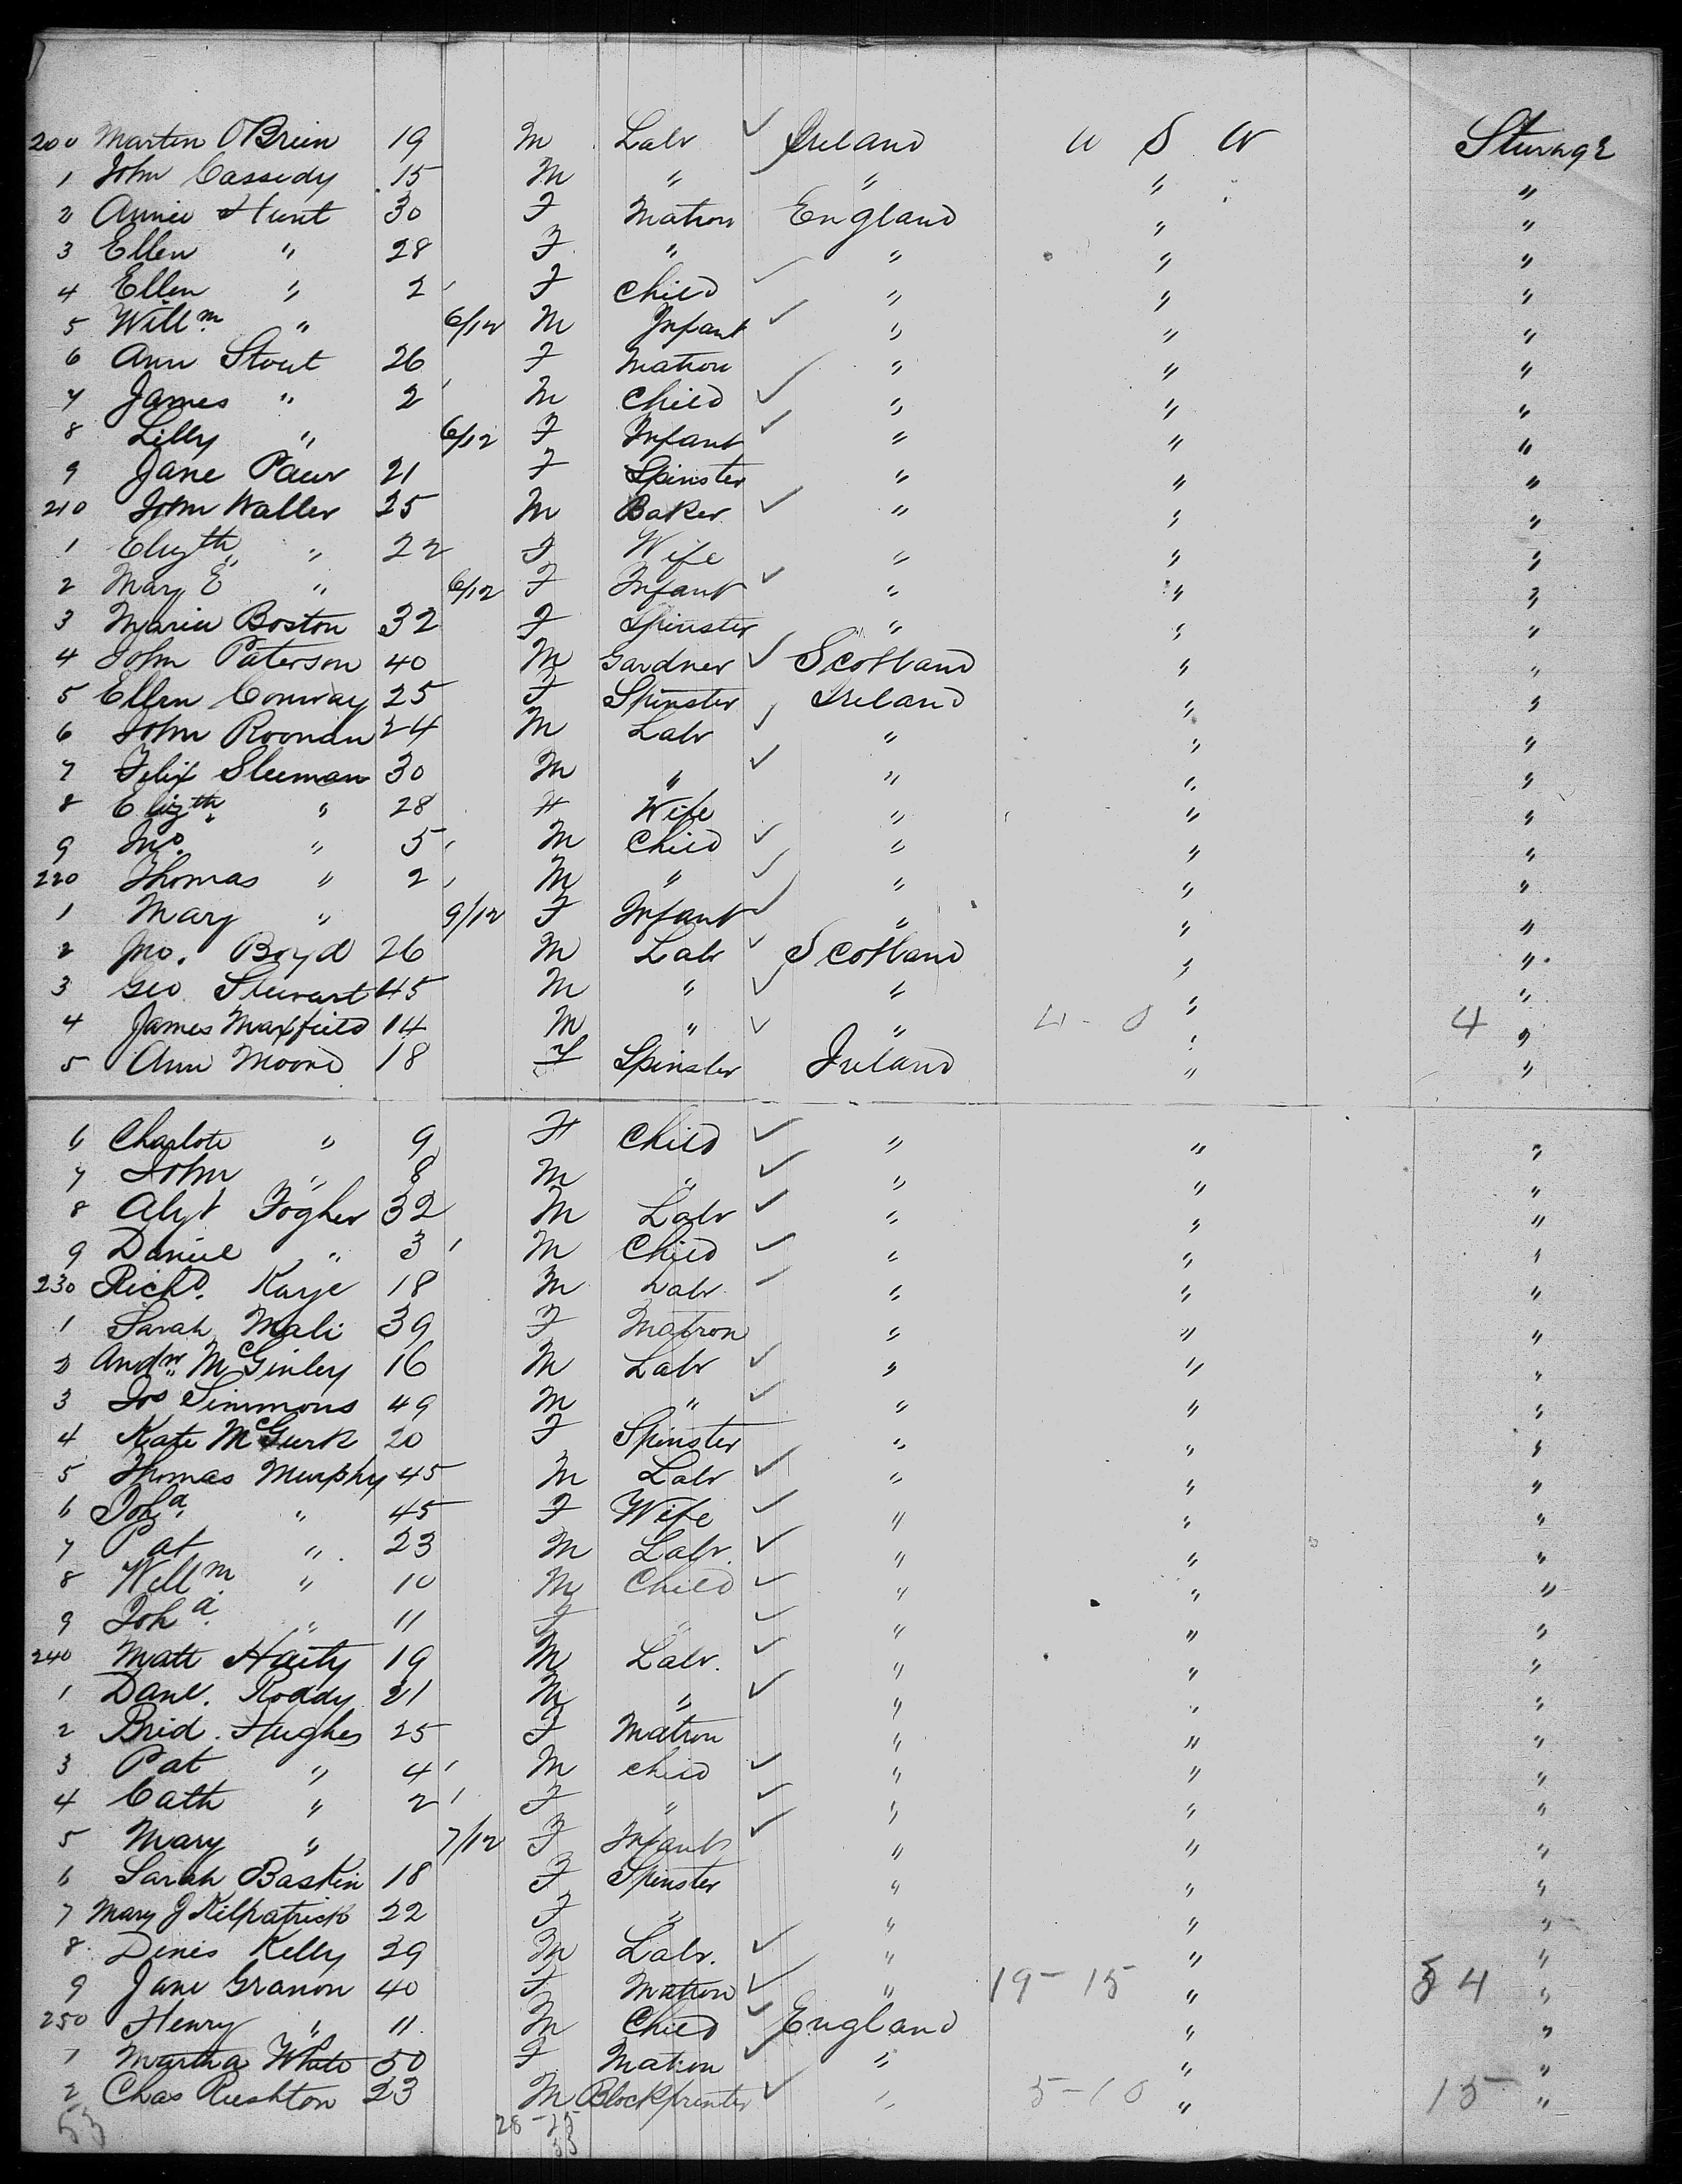 200 Martin O'Brien 19 M Labr ✓ Ireland U S W Sturage
1 John Cassedy 15 M " " " "
2 Annie Hunt 30 F Matron England " "
3 Ellen " 28 F " " " "
4 Ellen " 2 F Child ✓ " " "
5 Willm " 6/12 M Infant ✓ " " "
6 Ann Stout 26 F Matron " " "
7 James " 2 M Child ✓ " " "
8 Lilly " 6/12 F Infant ✓ " " "
9 Jane 21 F Spinster " " "
210 John Waller 25 M Baker ✓ " " "
1 Elizth " 22 F Wife " " "
2 Mary E " 6/12 F Infant ✓ " " "
3 Maria Boston 32 F Spinster " " "
4 John Paterson 40 M Gardner ✓ Scotland " "
5 Ellen Conway 25 F Spinster Ireland " "
6 John Roonan 24 M Labr ✓ " " "
7 Felix Sleeman 30 M " ✓ " " "
8 Elizth " 28 F Wife " " "
9 Jno. " 5 M Child ✓ " " "
220 Thomas " 2 M " ✓ " " "
1 Mary " 9/12 F Infant ✓ " " "
2 Jno. Boyd 26 M Labr ✓ Scotland " "
3 Geo Stewart 45 M " ✓ " " "
4 James Maxfield 14 M " ✓ " " 4 "
5 Ann Moore 18 F Spinster Ireland " "
6 Charlote " 9 F Child ✓ " " "
7 John " 8 M " ✓ " " "
8 Alext Fogher 32 M Labr ✓ " " "
9 Daniel " 3 M Child ✓ " " "
230 Richd. Kaye 18 M Labr ✓ " " "
1 Sarah Mali 39 F Matron " " "
2 Andw McGinley 16 M Labr ✓ " " "
3 Jos Simmons 49 M " ✓ " " "
4 Kate McGurk 20 F Spinster " " "
5 Thomas Murphy 45 M Labr ✓ " " "
6 Joha " 45 F Wife ✓ " " "
7 Pat " 23 M Labr. ✓ " " "
8 Willm " 10 M Child ✓ " " "
9 Joha " 11 F " ✓ " " "
240 Matt Haity 19 M Labr. ✓ " " "
1 Danl. Roddy 21 M " ✓ " " "
2 Brid. Hughes 25 F Matron " " "
3 Pat " 4 M Child ✓ " " "
4 Cath " 2 F " ✓ " " "
5 Mary " 7/12 F Infant ✓ " " "
6 Sarah Baskin 18 F Spinster " " "
7 Mary J Kilpatrick 22 F " " " "
8 Denis Kelly 29 M Labr. ✓ " " "
9 Jane Granon 40 F Matron ✓ " 19-15 " 4 "
250 Henry " 11 M Child ✓ England " "
1 Martha White 50 F Matron ✓ " " "
2 Chas Rushton 23 M Blockprinter ✓ " 5-10 " 15 "
53 28-25
53